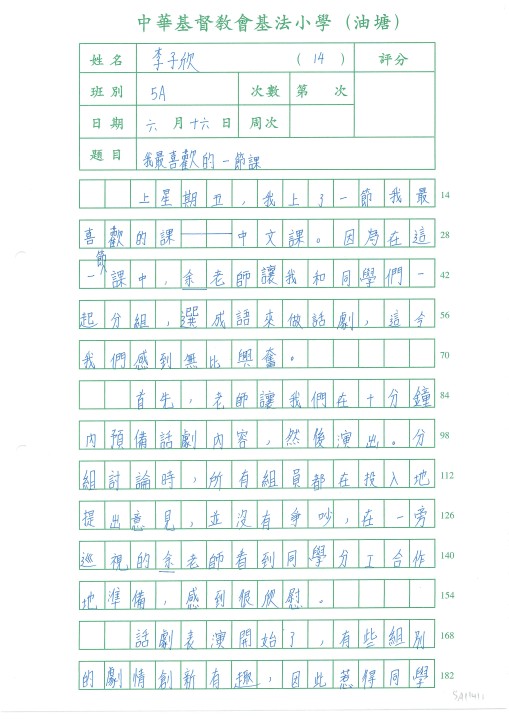 中華基督教會基法小學（油塘）
姓名 李子欣 (14) 評分
班別 5A 次數 第 次
日期 六 月 十六 日 周次
題目 我最喜歡的一節課
上星期五，我上了一節我最 14
喜歡的課——中文課。因為在這 28
節
一課中，余老師讓我和同學們一 42
起分組，選成語來做話劇，這令 56
我們感到無比興奮。 70
首先，老師讓我們在十分鐘 84
內預備話劇內容，然後演出。分 98
組討論時，所有組員都在投入地 112
提出意見，並沒有爭吵，在一旁 126
巡視的余老師看到同學分工合作 140
地準備，感到很欣慰。 154
話劇表演開始了，有些組別 168
的劇情創新有趣，因此惹得同學 182